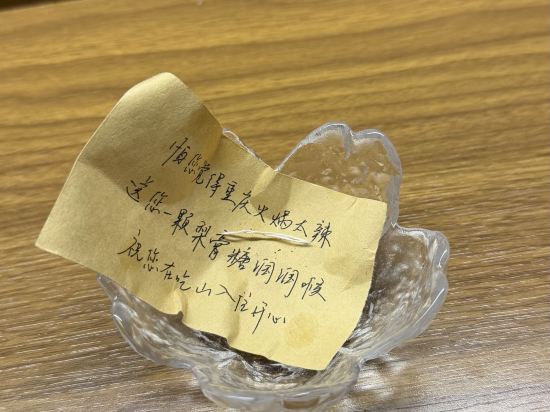 怕您觉得重庆火锅太辣
送您一颗梨膏糖润润喉
祝您在吃山入住开心